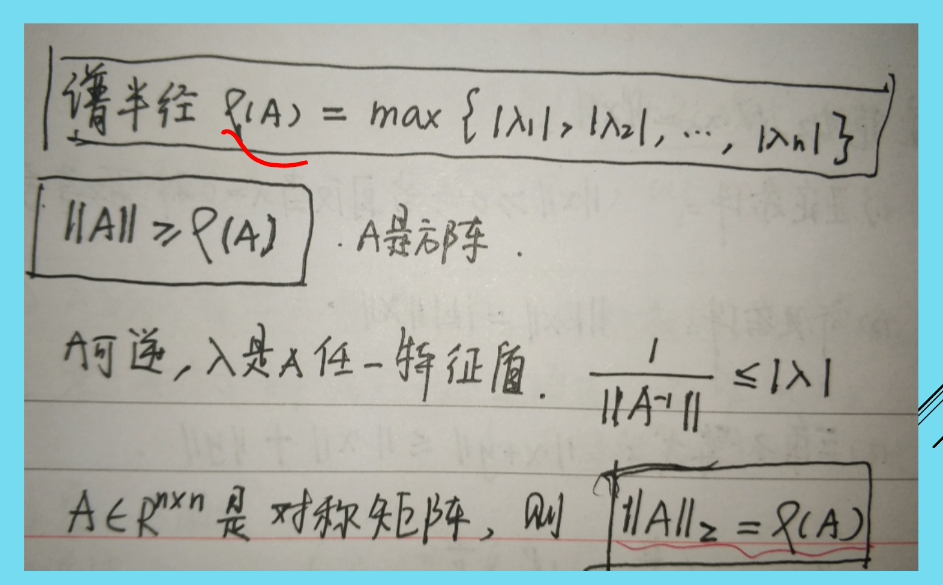 谱半径 ρ(A) = max { |λ₁|, |λ₂|, ⋯, |λn| }
||A|| ≥ ρ(A) . A是方阵.
A可逆, λ是A任一特征值. 1/||A⁻¹|| ≤ |λ|
A∈Rⁿˣⁿ是对称矩阵, 则 ||A||₂ = ρ(A)